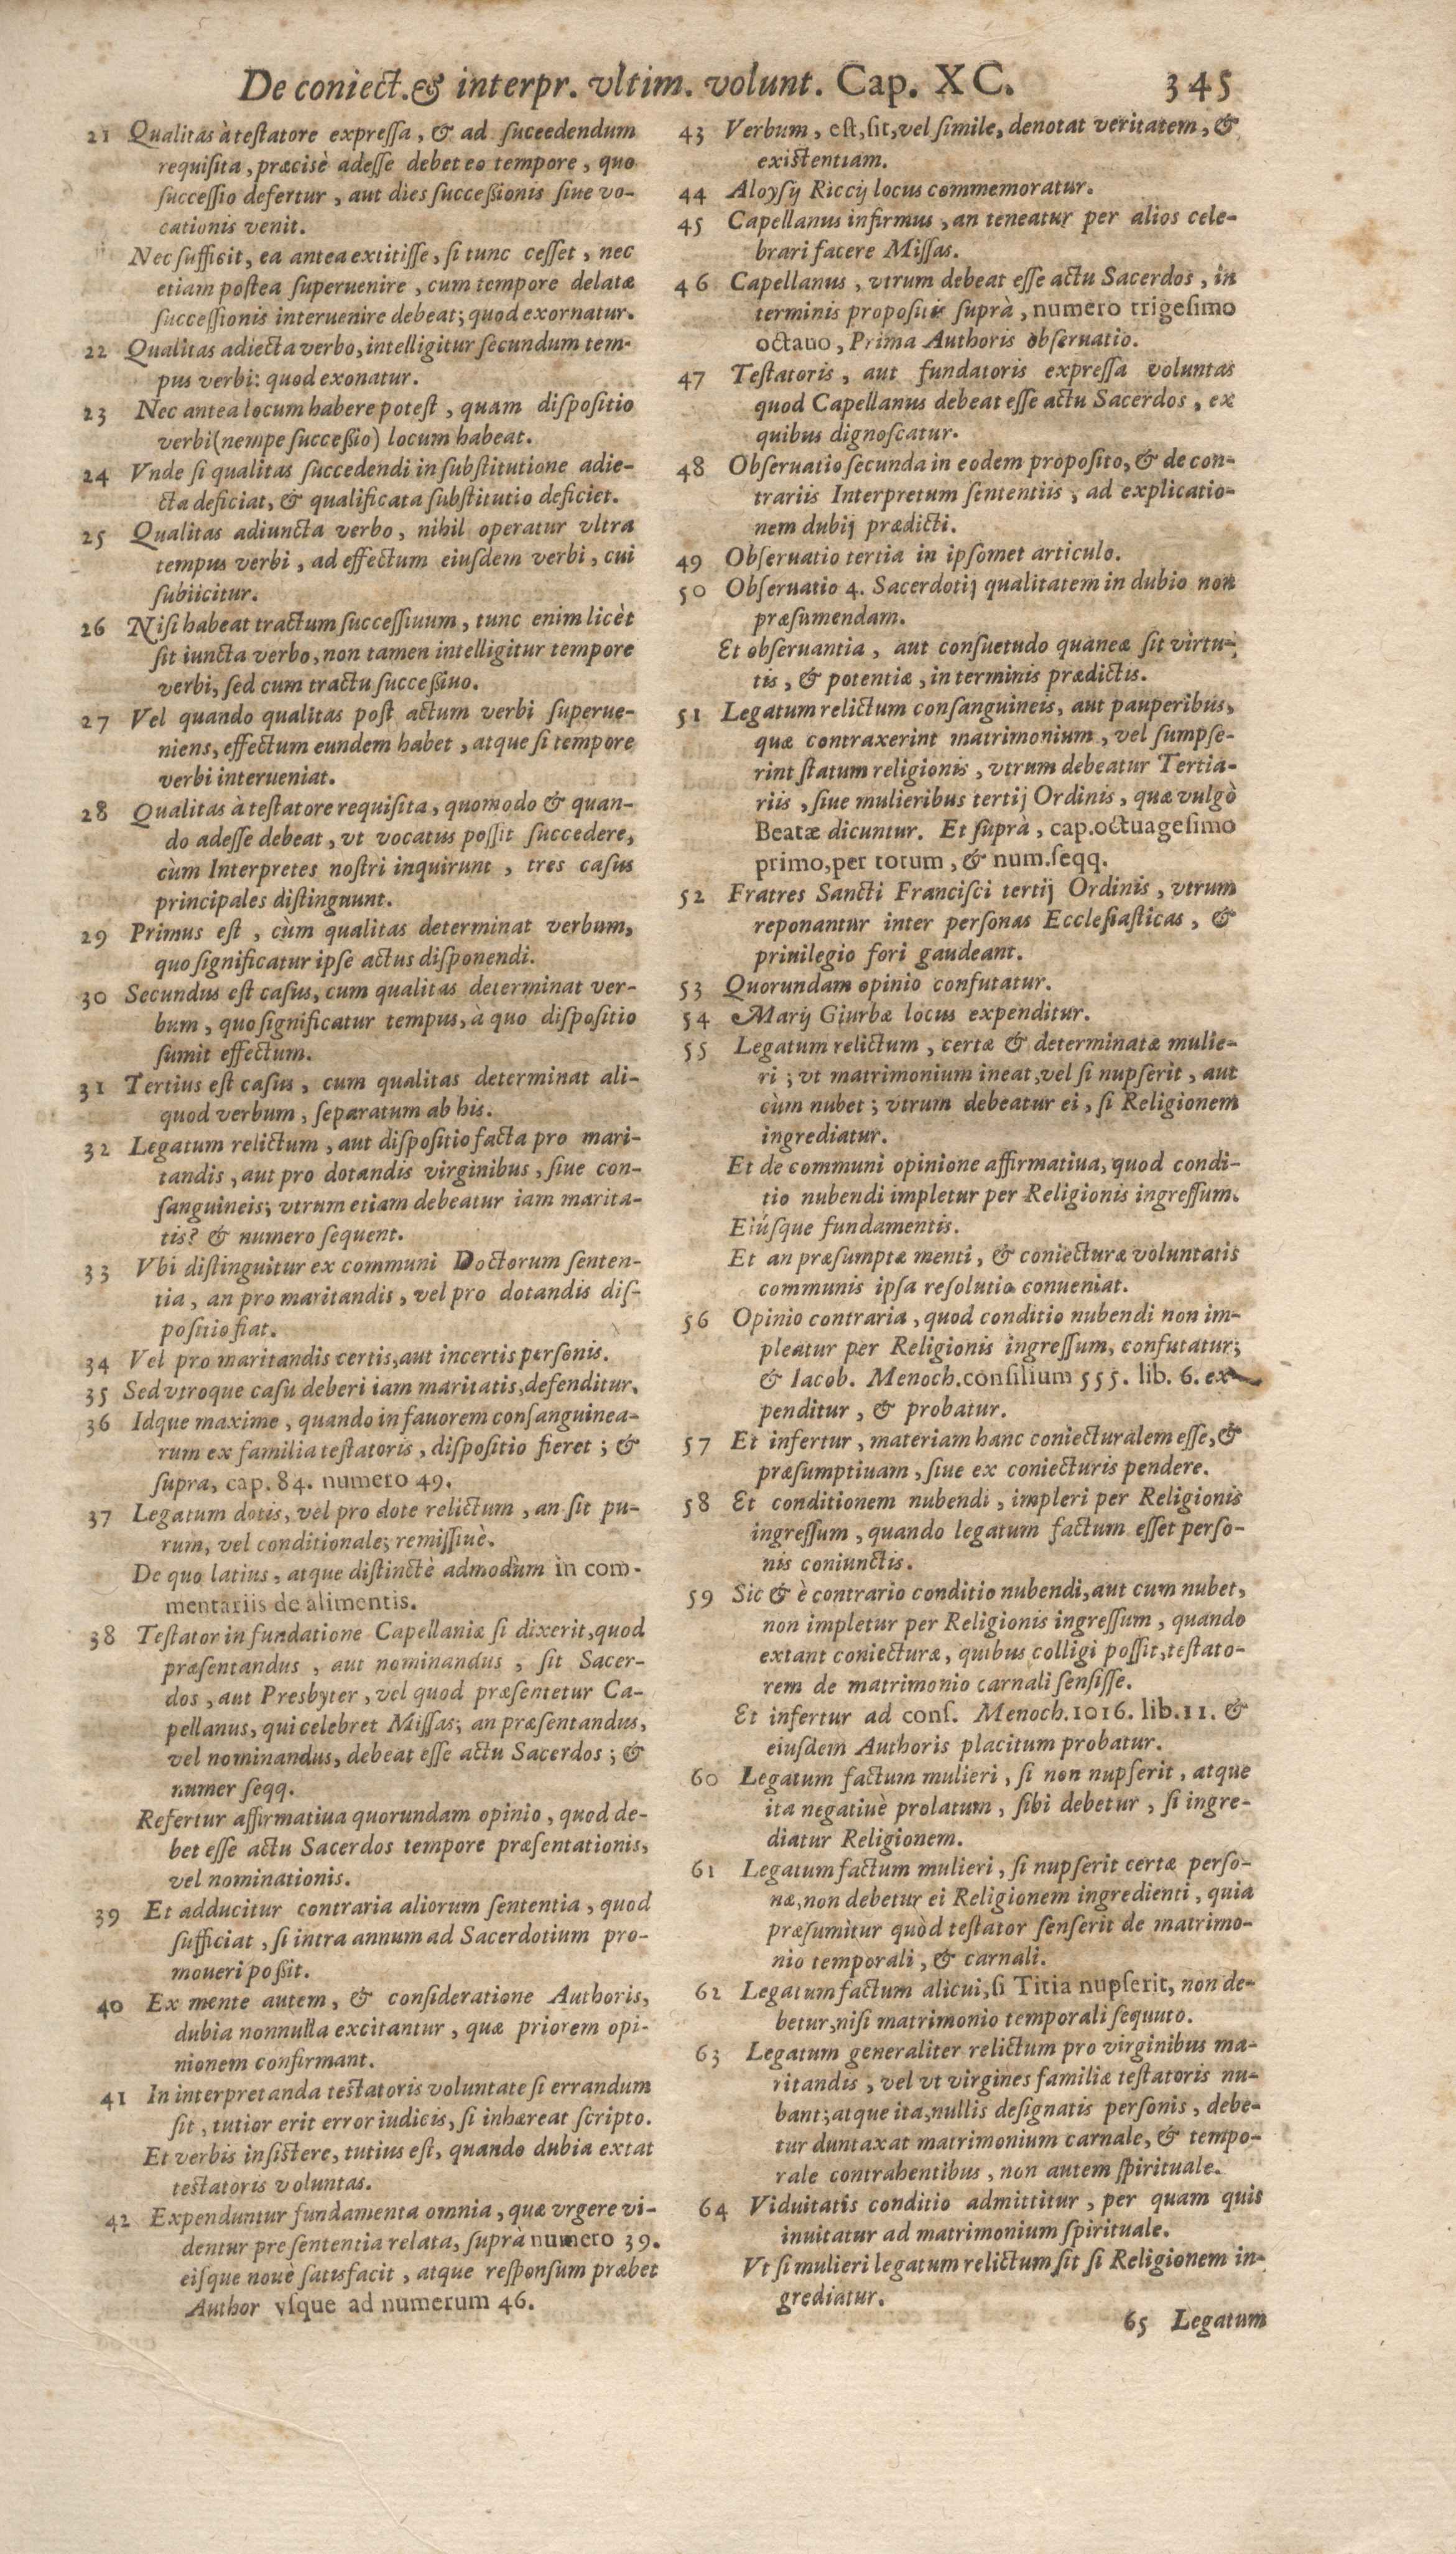 De coniect. & interpr. vltim. volunt. Cap. XC. 345
21 Qualitas à testatore expressa, & ad suceedendum
requisita, præcisè adesse debet eo tempore, quo
successio defertur, aut dies successionis siue vo-
cationis venit.
Nec sufficit, ea antea extitisse, si tunc cesset, nec
etiam postea superuenire, cum tempore delatæ
successionis interuenire debeat; quod exornatur.
22 Qualitas adiecta verbo, intelligitur secundum tem-
pus verbi: quod exonatur.
23 Nec antea locum habere potest, quam dispositio
verbi (nempe successio) locum habeat.
24 Vnde si qualitas succedendi in substitutione adie-
cta deficiat, & qualificata substitutio deficiet.
25 Qualitas adiuncta verbo, nihil operatur vltra
tempus verbi, ad effectum eiusdem verbi, cui
subiicitur.
26 Nisi habeat tractum successiuum, tunc enim licèt
sit iuncta verbo, non tamen intelligitur tempore
verbi, sed cum tractu successiuo.
27 Vel quando qualitas post actum verbi superue-
niens, effectum eundem habet, atque si tempore
verbi interueniat.
28 Qualitas à testatore requisita, quomodo & quan-
do adesse debeat, vt vocatus possit succedere,
cùm Interpretes nostri inquirunt, tres casus
principales distinguunt.
29 Primus est, cùm qualitas determinat verbum,
quo significatur ipse actus disponendi.
30 Secundus est casus, cum qualitas determinat ver-
bum, quo significatur tempus, à quo dispositio
sumit effectum.
31 Tertius est casus, cum qualitas determinat ali-
quod verbum, separatum ab his.
32 Legatum relictum, aut dispositio facta pro mari-
tandis, aut pro dotandis virginibus, siue con-
sanguineis; vtrum etiam debeatur iam marita-
tis? & numero sequent.
33 Vbi distinguitur ex communi Doctorum senten-
tia, an pro maritandis, vel pro dotandis dis-
positio fiat.
34 Vel pro maritandis certis, aut incertis personis.
35 Sed vtroque casu deberi iam maritatis, defenditur.
36 Idque maxime, quando in fauorem consanguinea-
rum ex familia testatoris, dispositio fieret; &
supra, cap. 84. numero 49.
37 Legatum dotis, vel pro dote relictum, an sit pu-
rum, vel conditionale; remissiuè.
De quo latius, atque distinctè admodùm in com-
mentariis de alimentis.
38 Testator in fundatione Capellaniæ si dixerit, quod
præsentandus, aut nominandus, sit Sacer-
dos, aut Presbyter, vel quod præsentetur Ca-
pellanus, qui celebret Missas; an præsentandus,
vel nominandus, debeat esse actu Sacerdos; &
numer seqq.
Refertur affirmatiua quorundam opinio, quod de-
bet esse actu Sacerdos tempore præsentationis,
vel nominationis.
39 Et adducitur contraria aliorum sententia, quod
sufficiat, si intra annum ad Sacerdotium pro-
moueri possit.
40 Ex mente autem, & consideratione Authoris,
dubia nonnulla excitantur, quæ priorem opi-
nionem confirmant.
41 In interpretanda testatoris voluntate si errandum
sit, tutior erit error iudicis, si inhæreat scripto.
Et verbis insistere, tutius est, quando dubia extat
testatoris voluntas.
42 Expenduntur fundamenta omnia, quæ vrgere vi-
dentur pre sententia relata, suprà numero 39.
eisque nouè satisfacit, atque responsum præbet
Author vsque ad numerum 46.
43 Verbum, est, sit, vel simile, denotat veritatem, &
existentiam.
44 Aloysij Riccij locus commemoratur.
45 Capellanus infirmus, an teneatur per alios cele-
brari facere Missas.
46 Capellanus, vtrum debeat esse actu Sacerdos, in
terminis propositis suprà, numero trigesimo
octauo, Prima Authoris obseruatio.
47 Testatoris, aut fundatoris expressa voluntas
quod Capellanus debeat esse actu Sacerdos, ex
quibus dignoscatur.
48 Obseruatio secunda in eodem proposito, & de con-
trariis Interpretum sententiis, ad explicatio-
nem dubij prædicti.
49 Obseruatio tertia in ipsomet articulo.
50 Obseruatio 4. Sacerdotij qualitatem in dubio non
præsumendam.
Et obseruantia, aut consuetudo quaneæ sit virtu-
tis, & potentiæ, in terminis prædictis.
51 Legatum relictum consanguineis, aut pauperibus,
quæ contraxerint matrimonium, vel sumpse-
rint statum religionis, vtrum debeatur Tertia-
riis, siue mulieribus tertij Ordinis, quæ vulgò
Beatæ dicuntur. Et suprà, cap. octuagesimo
primo, per totum, & num. seqq.
52 Fratres Sancti Francisci tertij Ordinis, vtrum
reponantur inter personas Ecclesiasticas, &
priuilegio fori gaudeant.
53 Quorundam opinio confutatur.
54 Marij Giurbæ locus expenditur.
55 Legatum relictum, certæ & determinatæ mulie-
ri; vt matrimonium ineat, vel si nupserit, aut
cùm nubet; vtrum debeatur ei, si Religionem
ingrediatur.
Et de communi opinione affirmatiua, quod condi-
tio nubendi impletur per Religionis ingressum.
Eiúsque fundamentis.
Et an præsumptæ menti, & coniecturæ voluntatis
communis ipsa resolutio conueniat.
56 Opinio contraria, quod conditio nubendi non im-
pleatur per Religionis ingressum, confutatur;
& Iacob. Menoch. consilium 555. lib. 6. ex-
penditur, & probatur.
57 Et infertur, materiam hanc coniecturalem esse, &
præsumptiuam, siue ex coniecturis pendere.
58 Et conditionem nubendi, impleri per Religionis
ingressum, quando legatum factum esset perso-
nis coniunctis.
59 Sic & è contrario conditio nubendi, aut cum nubet,
non impletur per Religionis ingressum, quando
extant coniecturæ, quibus colligi possit, testato-
rem de matrimonio carnali sensisse.
Et infertur ad cons. Menoch. 1016. lib. 11. &
eiusdem Authoris placitum probatur.
60 Legatum factum mulieri, si non nupserit, atque
ita negatiuè prolatum, sibi debetur, si ingre-
diatur Religionem.
61 Legatum factum mulieri, si nupserit certæ perso-
næ, non debetur ei Religionem ingredienti, quia
præsumitur quòd testator senserit de matrimo-
nio temporali, & carnali.
62 Legatum factum alicui, si Titia nupserit, non de-
betur, nisi matrimonio temporali sequuto.
63 Legatum generaliter relictum pro virginibus ma-
ritandis, vel vt virgines familiæ testatoris nu-
bant; atque ita, nullis designatis personis, debe-
tur duntaxat matrimonium carnale, & tempo-
rale contrahentibus, non autem spirituale.
64 Viduitatis conditio admittitur, per quam quis
inuitatur ad matrimonium spirituale.
Vt si mulieri legatum relictum sit si Religionem in-
grediatur.
65 Legatum